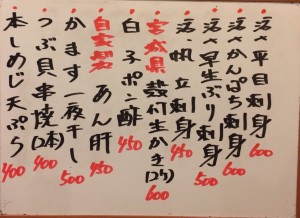 活〆平目刺身 600
活〆かんぱち刺身 600
活〆早生ぶり刺身 600
活帆立刺身 450
宮城県殻付生かき(2ケ) 600
白子ポン酢 450
自家製 あん肝 400
かます一夜干し 500
つぶ貝串焼(2本) 400
本しめじ天ぷら 400